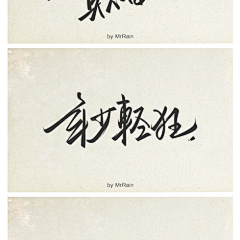 by MrRain
年少輕狂
by MrRain